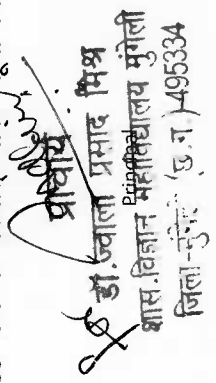 प्राचार्य
डॉ.ज्वाला प्रसाद मिश्र
Principal
शास.विज्ञान महाविद्यालय मुंगेली
जिला-मुंगेली (छ.ग.)-495334